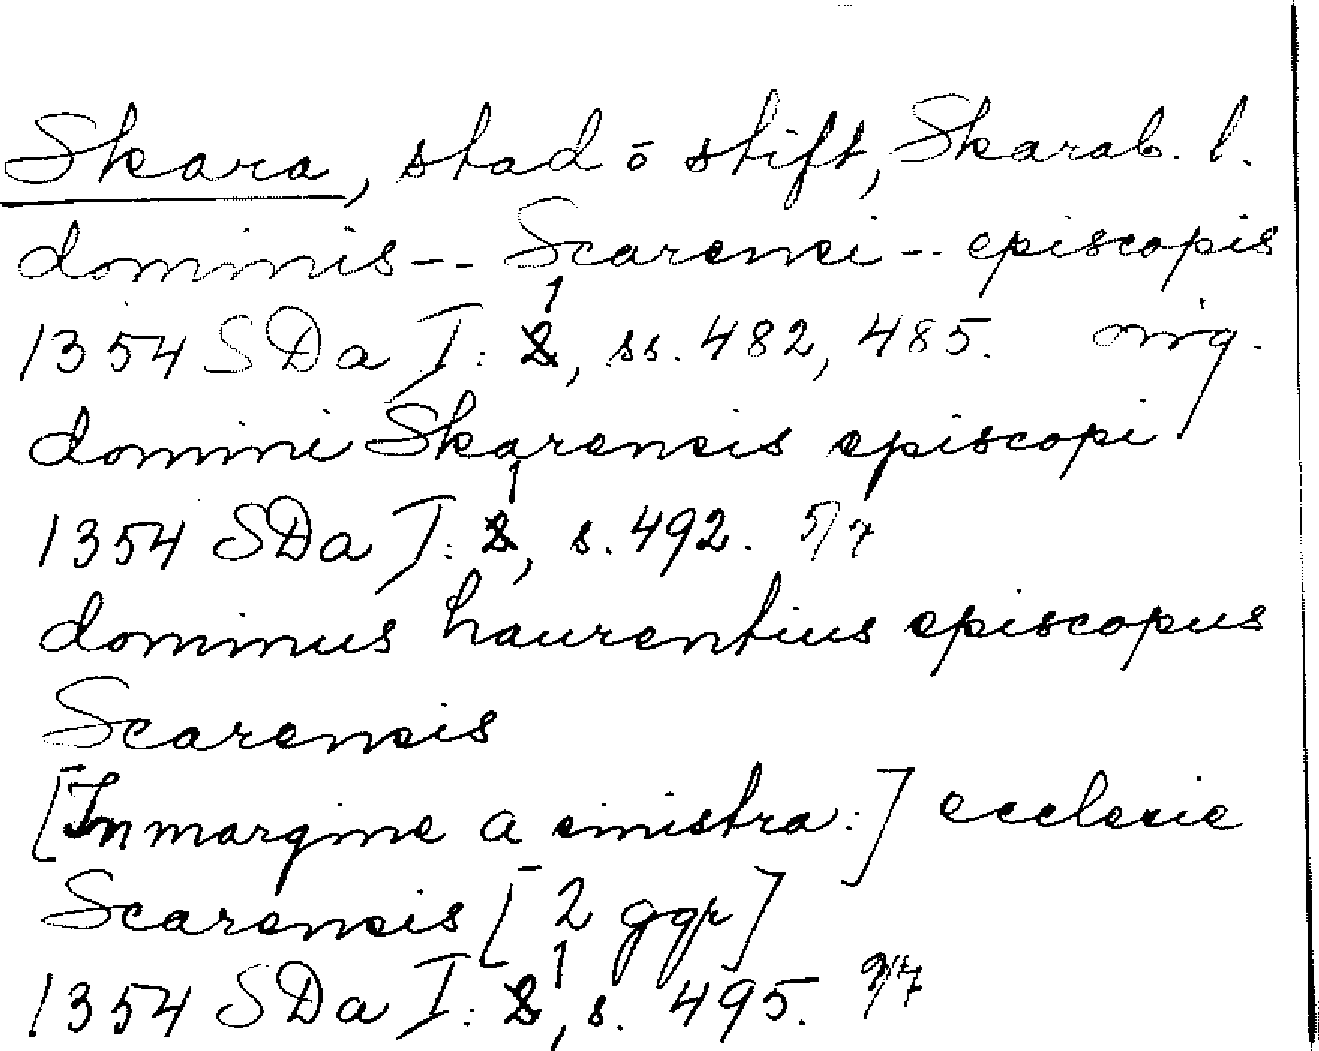 Skara, stad ō stift, Skarab. l.
dominis -- Scarensi -- episcopis
1354 SDa I: 1, ss. 482, 485. orig.
domini Skarensis episcopi
1354 SDa I: 1, s. 492. 5/7
dominus Laurentius episcopus
Scarensis
[In margine a sinistra:] ecclesie
Scarensis [2 ggr]
1354 SDa I: 1, s. 495.